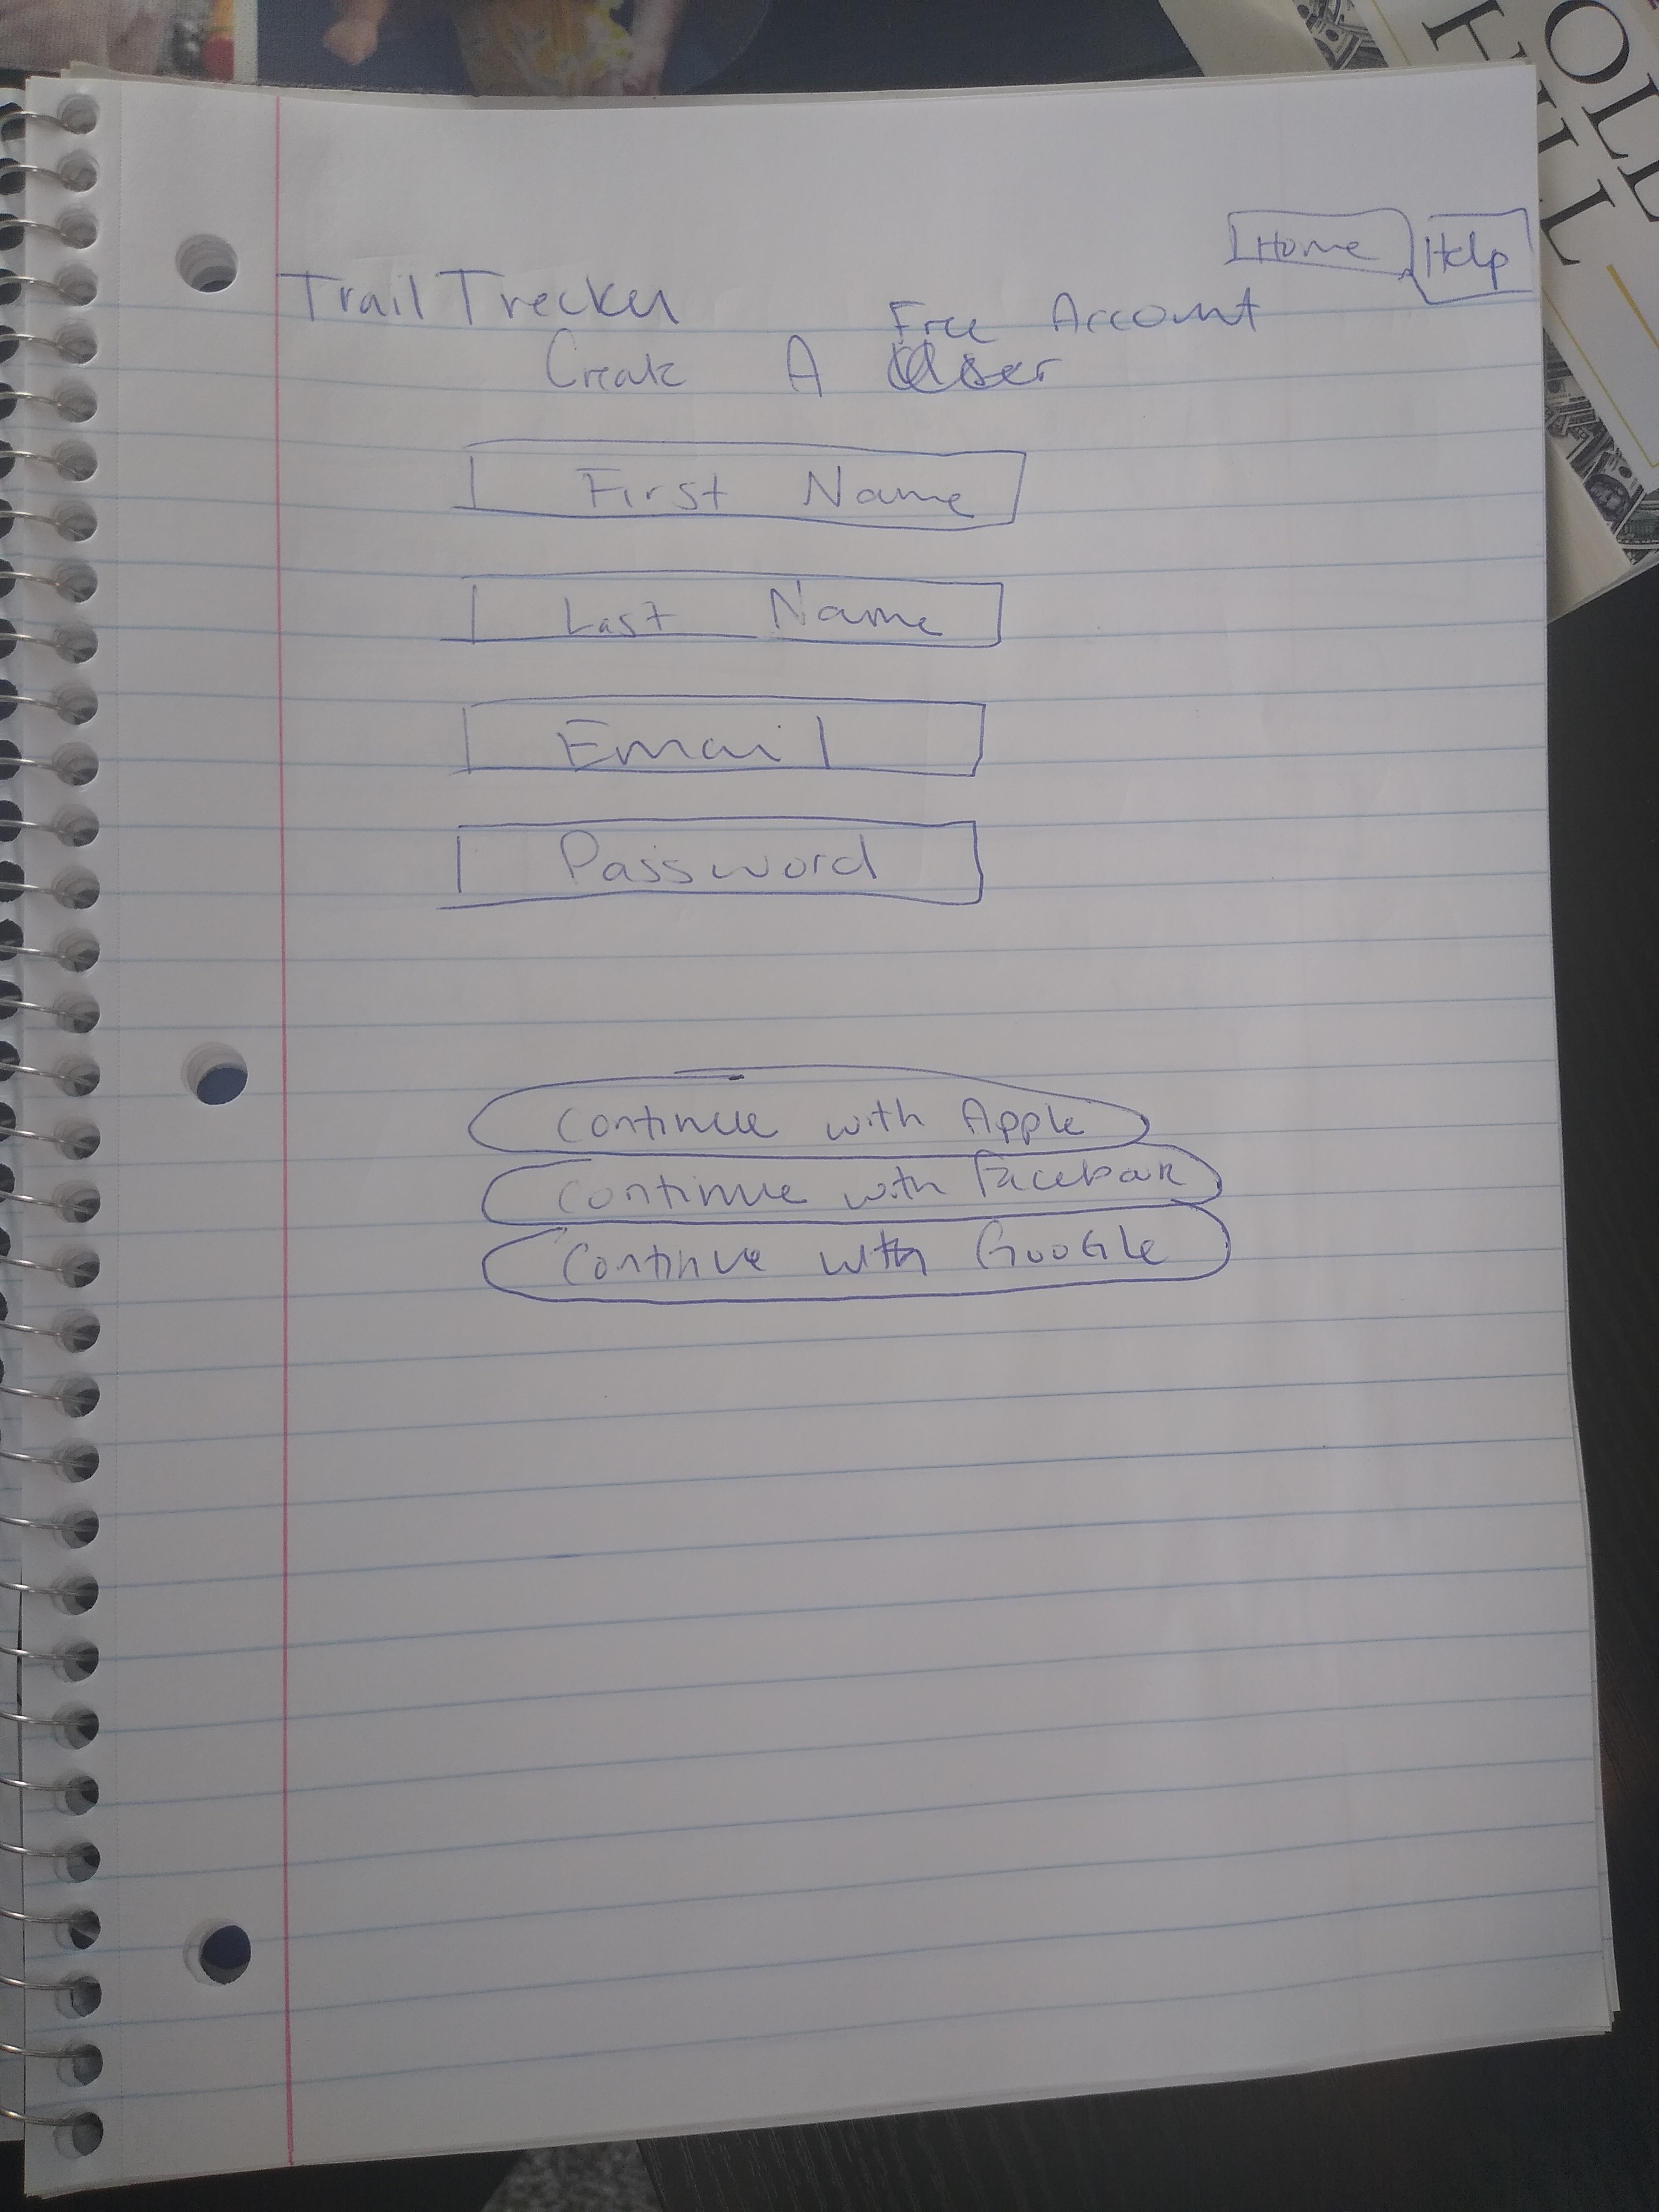 Home Help
Trail Trecker
Free Account
Create A User
First Name
Last Name
Email
Password
Continue with Apple
Continue with Facebook
Continue with GooGle